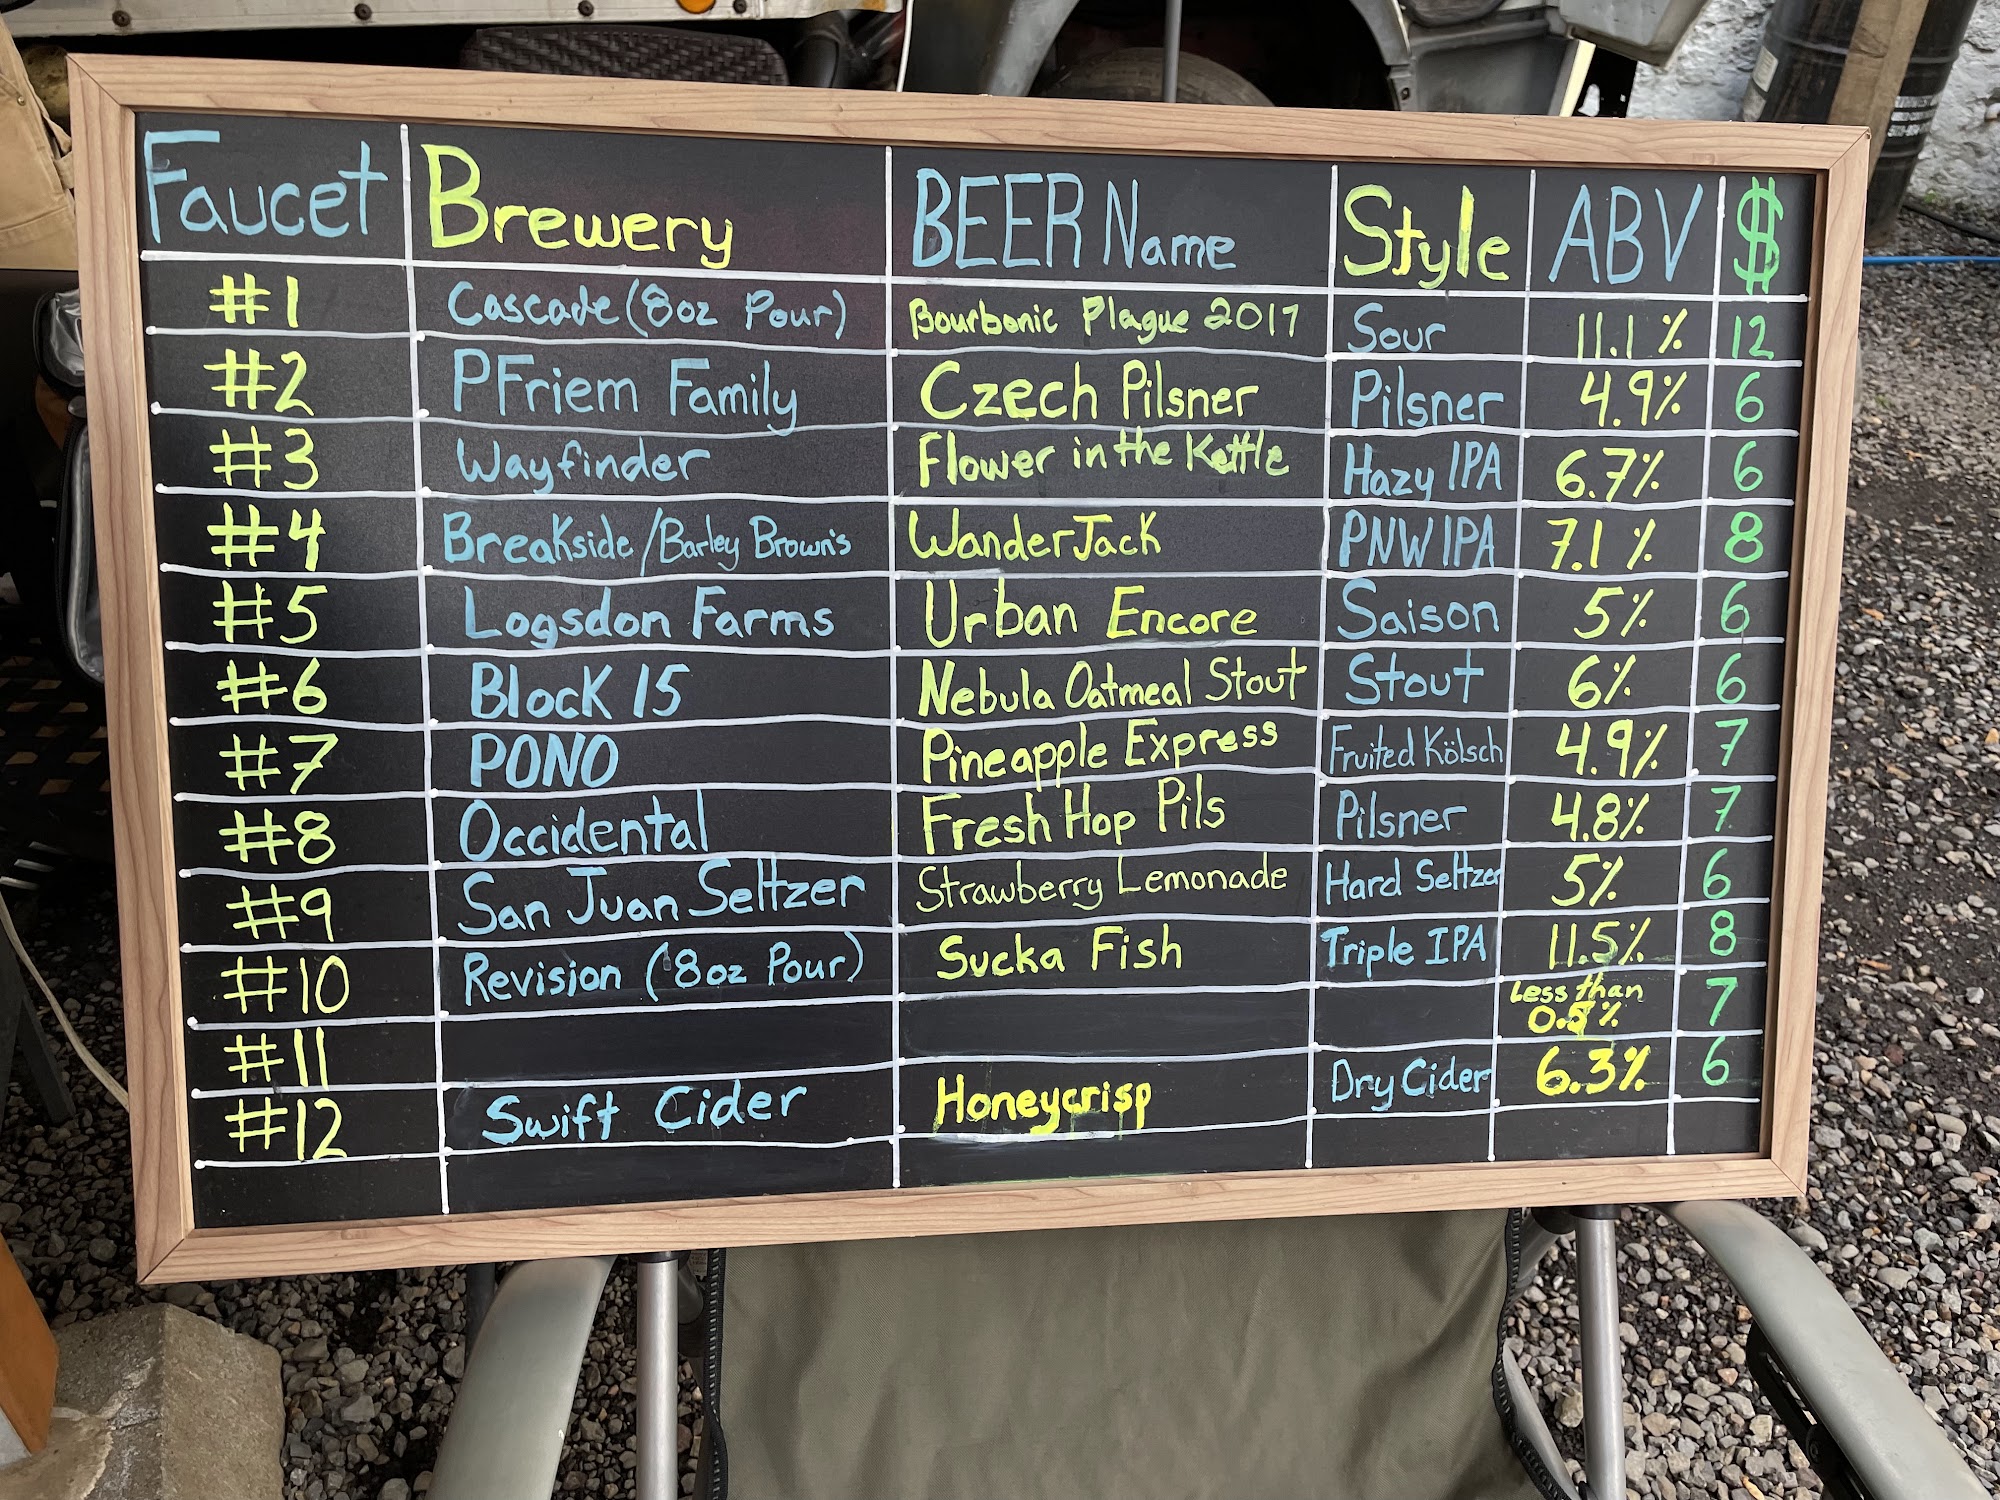 Faucet Brewery BEER Name Style ABV $
#1 Cascade (8oz Pour) Bourbonic Plague 2017 Sour 11.1% 12
#2 PFriem Family Czech Pilsner Pilsner 4.9% 6
#3 Wayfinder Flower in the Kettle Hazy IPA 6.7% 6
#4 Breakside/Barley Brown's WanderJack PNW IPA 7.1% 8
#5 Logsdon Farms Urban Encore Saison 5% 6
#6 Block 15 Nebula Oatmeal Stout Stout 6% 6
#7 PONO Pineapple Express Fruited Kölsch 4.9% 7
#8 Occidental Fresh Hop Pils Pilsner 4.8% 7
#9 San Juan Seltzer Strawberry Lemonade Hard Seltzer 5% 6
#10 Revision (8oz Pour) Sucka Fish Triple IPA 11.5% 8
#11 Less than 0.5% 7
#12 Swift Cider Honeycrisp Dry Cider 6.3% 6